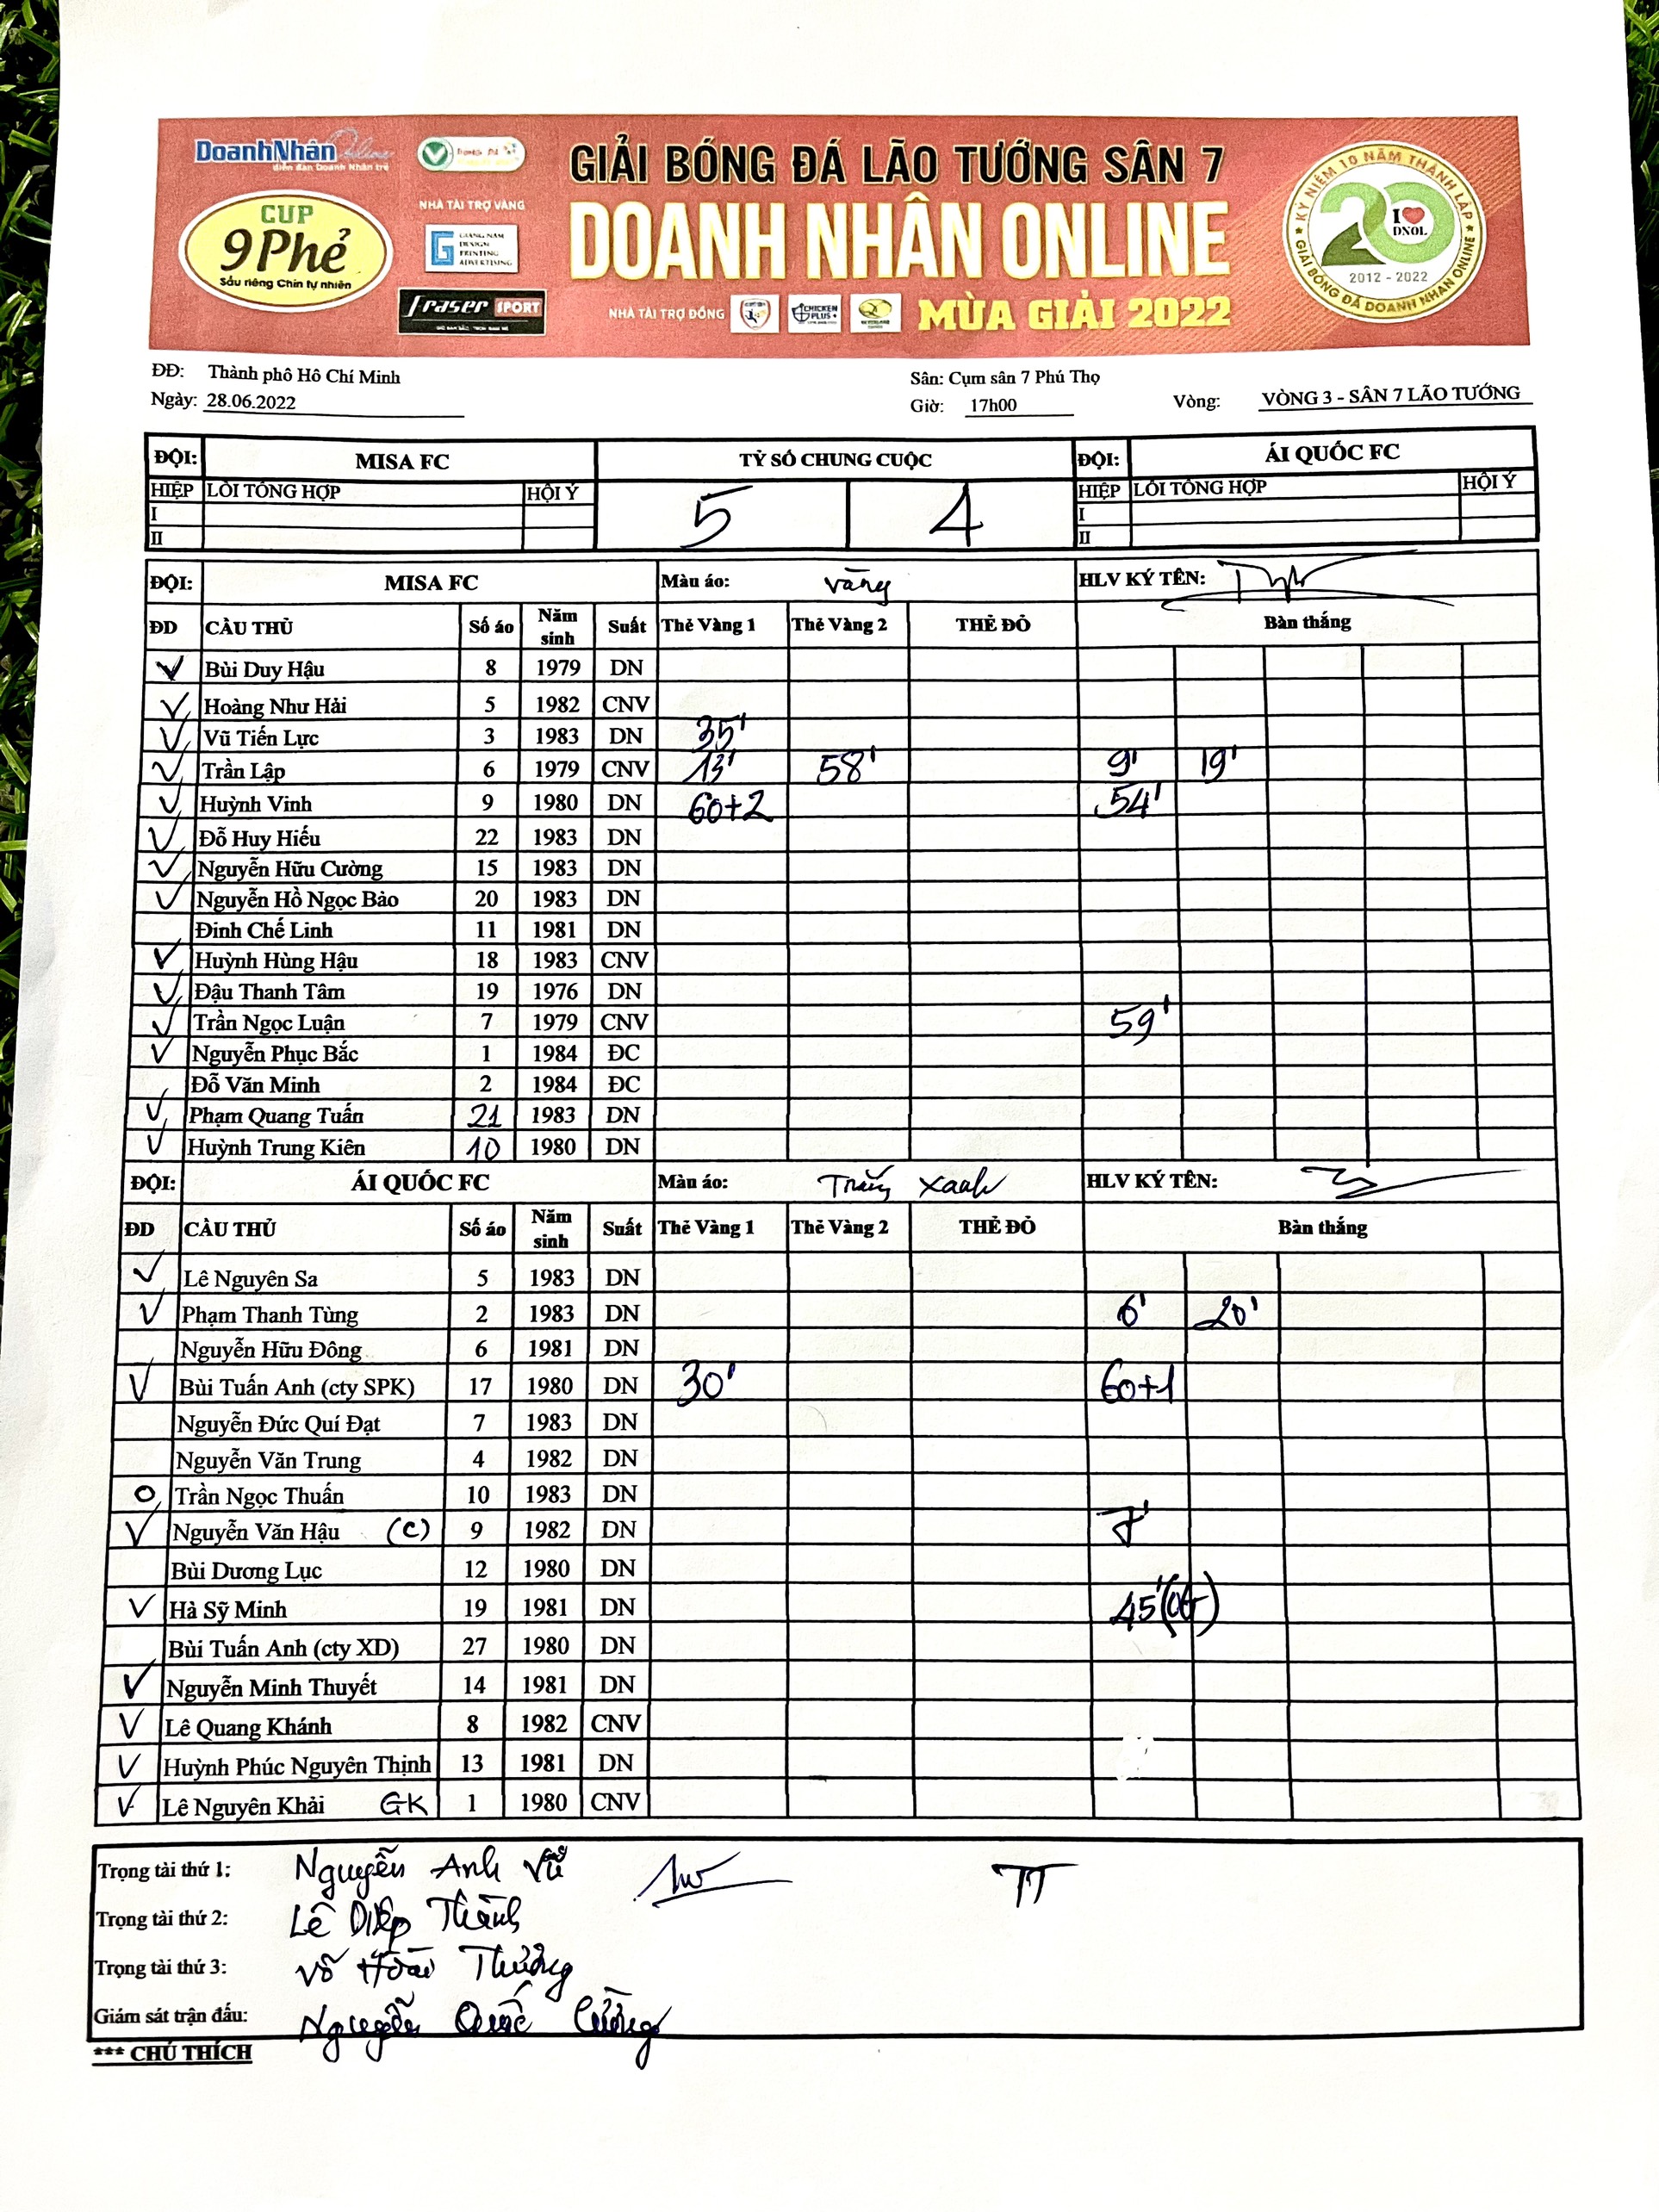 DoanhNhân Online
diễn đàn Doanh Nhân trẻ
CUP
9Phẻ
Sầu riêng Chín tự nhiên
NHÀ TÀI TRỢ VÀNG
GIANG NAM
DESIGN
PRINTING
ADVERTISING
fraser SPORT
GIẢI BÓNG ĐÁ LÃO TƯỚNG SÂN 7
DOANH NHÂN ONLINE
NHÀ TÀI TRỢ ĐỒNG
CHICKEN
PLUS+
MÙA GIẢI 2022
KỶ NIỆM 10 NĂM THÀNH LẬP
I ❤ DNOL
2012 - 2022
GIẢI BÓNG ĐÁ DOANH NHÂN ONLINE
ĐĐ: Thành phố Hồ Chí Minh Sân: Cụm sân 7 Phú Thọ
Ngày: 28.06.2022 Giờ: 17h00 Vòng: VÒNG 3 - SÂN 7 LÃO TƯỚNG
ĐỘI: MISA FC TỶ SỐ CHUNG CUỘC ĐỘI: ÁI QUỐC FC
HIỆP LỖI TỔNG HỢP HỘI Ý 5 4 HIỆP LỖI TỔNG HỢP HỘI Ý
I I
II II
ĐỘI: MISA FC Màu áo: Vàng HLV KÝ TÊN:
ĐD CẦU THỦ Số áo Năm sinh Suất Thẻ Vàng 1 Thẻ Vàng 2 THẺ ĐỎ Bàn thắng
Bùi Duy Hậu 8 1979 DN
Hoàng Như Hải 5 1982 CNV
Vũ Tiến Lực 3 1983 DN 35'
Trần Lập 6 1979 CNV 13' 58' 9' 19'
Huỳnh Vinh 9 1980 DN 60+2 54'
Đỗ Huy Hiếu 22 1983 DN
Nguyễn Hữu Cường 15 1983 DN
Nguyễn Hồ Ngọc Bảo 20 1983 DN
Đinh Chế Linh 11 1981 DN
Huỳnh Hùng Hậu 18 1983 CNV
Đậu Thanh Tâm 19 1976 DN
Trần Ngọc Luận 7 1979 CNV 59'
Nguyễn Phục Bắc 1 1984 ĐC
Đỗ Văn Minh 2 1984 ĐC
Phạm Quang Tuấn 21 1983 DN
Huỳnh Trung Kiên 10 1980 DN
ĐỘI: ÁI QUỐC FC Màu áo: Trắng Xanh HLV KÝ TÊN:
ĐD CẦU THỦ Số áo Năm sinh Suất Thẻ Vàng 1 Thẻ Vàng 2 THẺ ĐỎ Bàn thắng
Lê Nguyên Sa 5 1983 DN
Phạm Thanh Tùng 2 1983 DN 6' 20'
Nguyễn Hữu Đông 6 1981 DN
Bùi Tuấn Anh (cty SPK) 17 1980 DN 30' 60+1
Nguyễn Đức Quí Đạt 7 1983 DN
Nguyễn Văn Trung 4 1982 DN
Trần Ngọc Thuấn 10 1983 DN
Nguyễn Văn Hậu (C) 9 1982 DN 7'
Bùi Dương Lục 12 1980 DN
Hà Sỹ Minh 19 1981 DN 45'
Bùi Tuấn Anh (cty XD) 27 1980 DN
Nguyễn Minh Thuyết 14 1981 DN
Lê Quang Khánh 8 1982 CNV
Huỳnh Phúc Nguyên Thịnh 13 1981 DN
Lê Nguyên Khải GK 1 1980 CNV
Trọng tài thứ 1: Nguyễn Anh Vũ TT
Trọng tài thứ 2: Lê Diệp Thành
Trọng tài thứ 3: Võ Hoài Thưởng
Giám sát trận đấu: Nguyễn Quốc Cường
*** CHÚ THÍCH